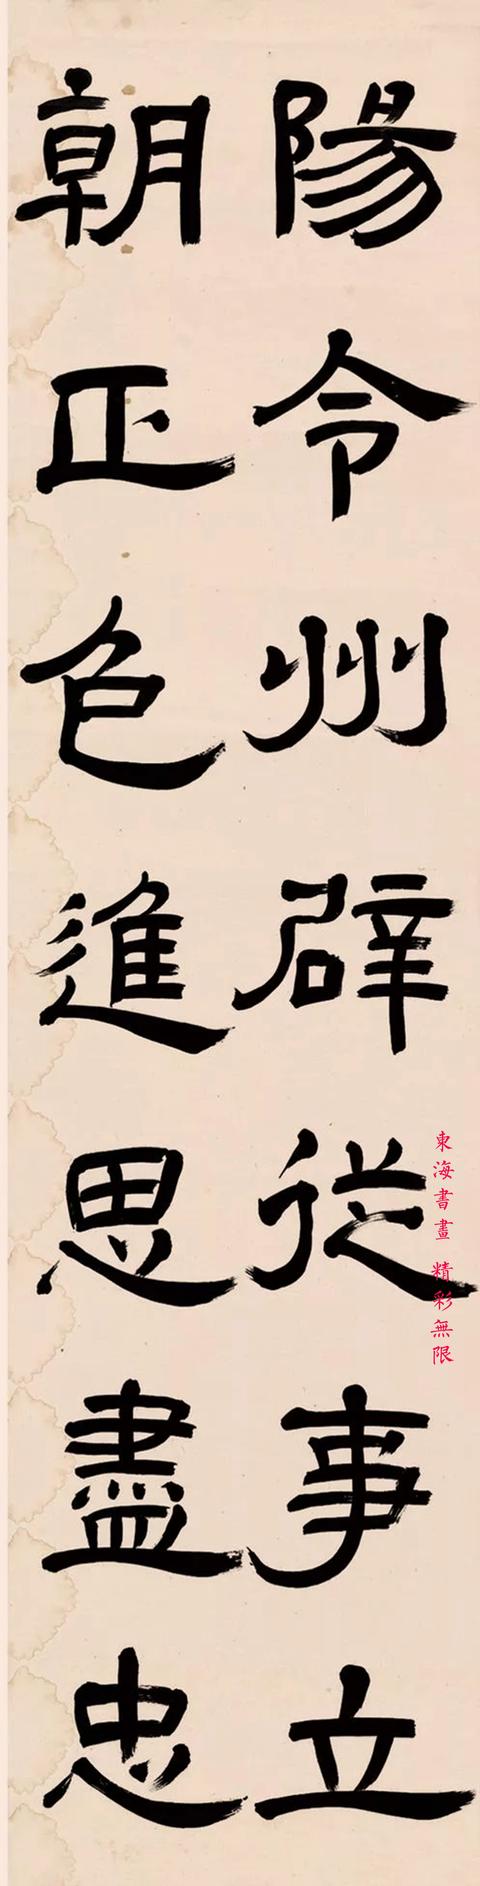 陽令州辟從事立
朝正色進思盡忠
東海書畫 精彩無限